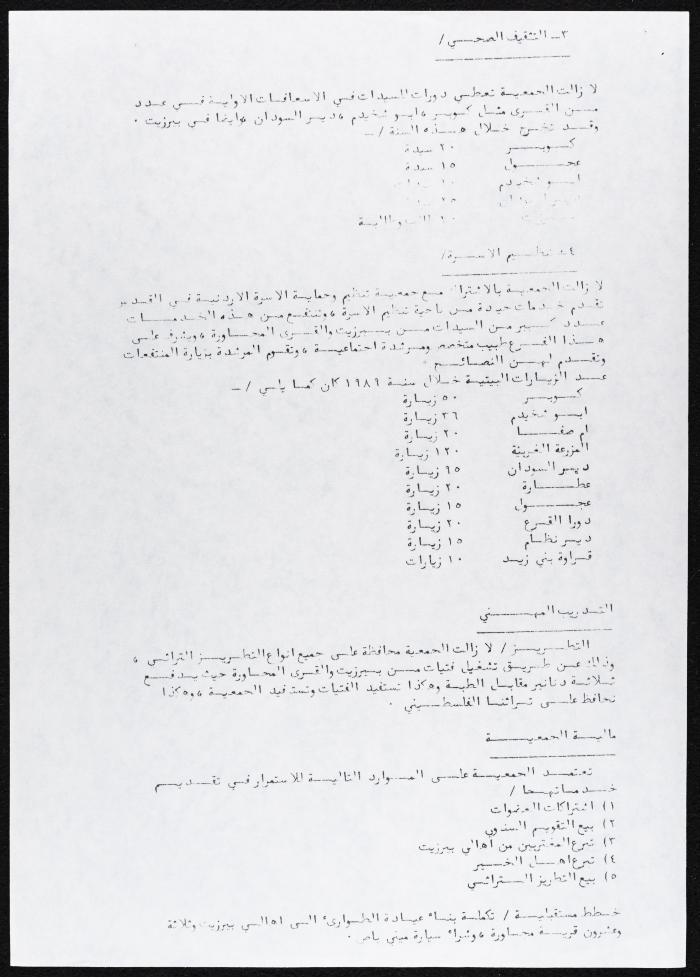 ٣ـ التثقيف الصحي /
لا زالت الجمعية تعطي دورات للسيدات في الاسعافات الاولية في عدد
من القرى مثل كوبر ، ابو شخيدم ، دير السودان وايضا في بيرزيت ٠
وقد تخرج خلال هذه السنة / ـ
كوبر ٢٠ سيدة
عجول ١٥ سيدة
ابو شخيدم ١٠
٢٥
٤ـ تنظيم الاسرة /
لا زالت الجمعية بالاشتراك مع جمعية تنظيم وحماية الاسرة الاردنية في القدس
تقدم خدمات جيدة من ناحية تنظيم الاسرة ، وتنتفع من هذه الخدمات
عدد كبير من السيدات من بيرزيت والقرى المجاورة ، ويشرف على
هذا الفرع طبيب متخصص ومرشدة اجتماعية ، وتقوم المرشدة بزيارة المنتفعات
وتقدم لهن النصائح ٠
عدد الزيارات البيتية خلال سنة ١٩٨٩ كان كما يلي / ـ
كوبر ٥٠ زيارة
ابو شخيدم ٣٦ زيارة
ام صفا ٢٠ زيارة
المزرعة الغربية ١٢٠ زيارة
دير السودان ٦٥ زيارة
عطارة ٢٠ زيارة
عجول ١٥ زيارة
دورا القرع ٢٠ زيارة
دير نظام ١٥ زيارة
قراوة بني زيد ١٠ زيارات
التدريب المهني
التطريز / لا زالت الجمعية محافظة على جميع انواع التطريز التراثي ،
وذلك عن طريق تشغيل فتيات من بيرزيت والقرى المجاورة حيث يدفع
ثلاثة دنانير مقابل الطبة وهكذا تستفيد الفتيات وتستفيد الجمعية ، وهكذا
نحافظ على تراثنا الفلسطيني ٠
مالية الجمعية
تعتمد الجمعية على الموارد التالية للاستمرار في تقديم
خدماتها /
١) اشتراكات العضوات
٢) بيع التقويم السنوي
٣) تبرع المغتربين من اهالي بيرزيت
٤) تبرع اهل الخير
٥) بيع التطاريز التراثي
خطط مستقبلية / تكملة بناء عيادة الطوارئ الى اهالي بيرزيت وثلاثة
وعشرون قرية مجاورة ، وشراء سيارة ميني باص ٠